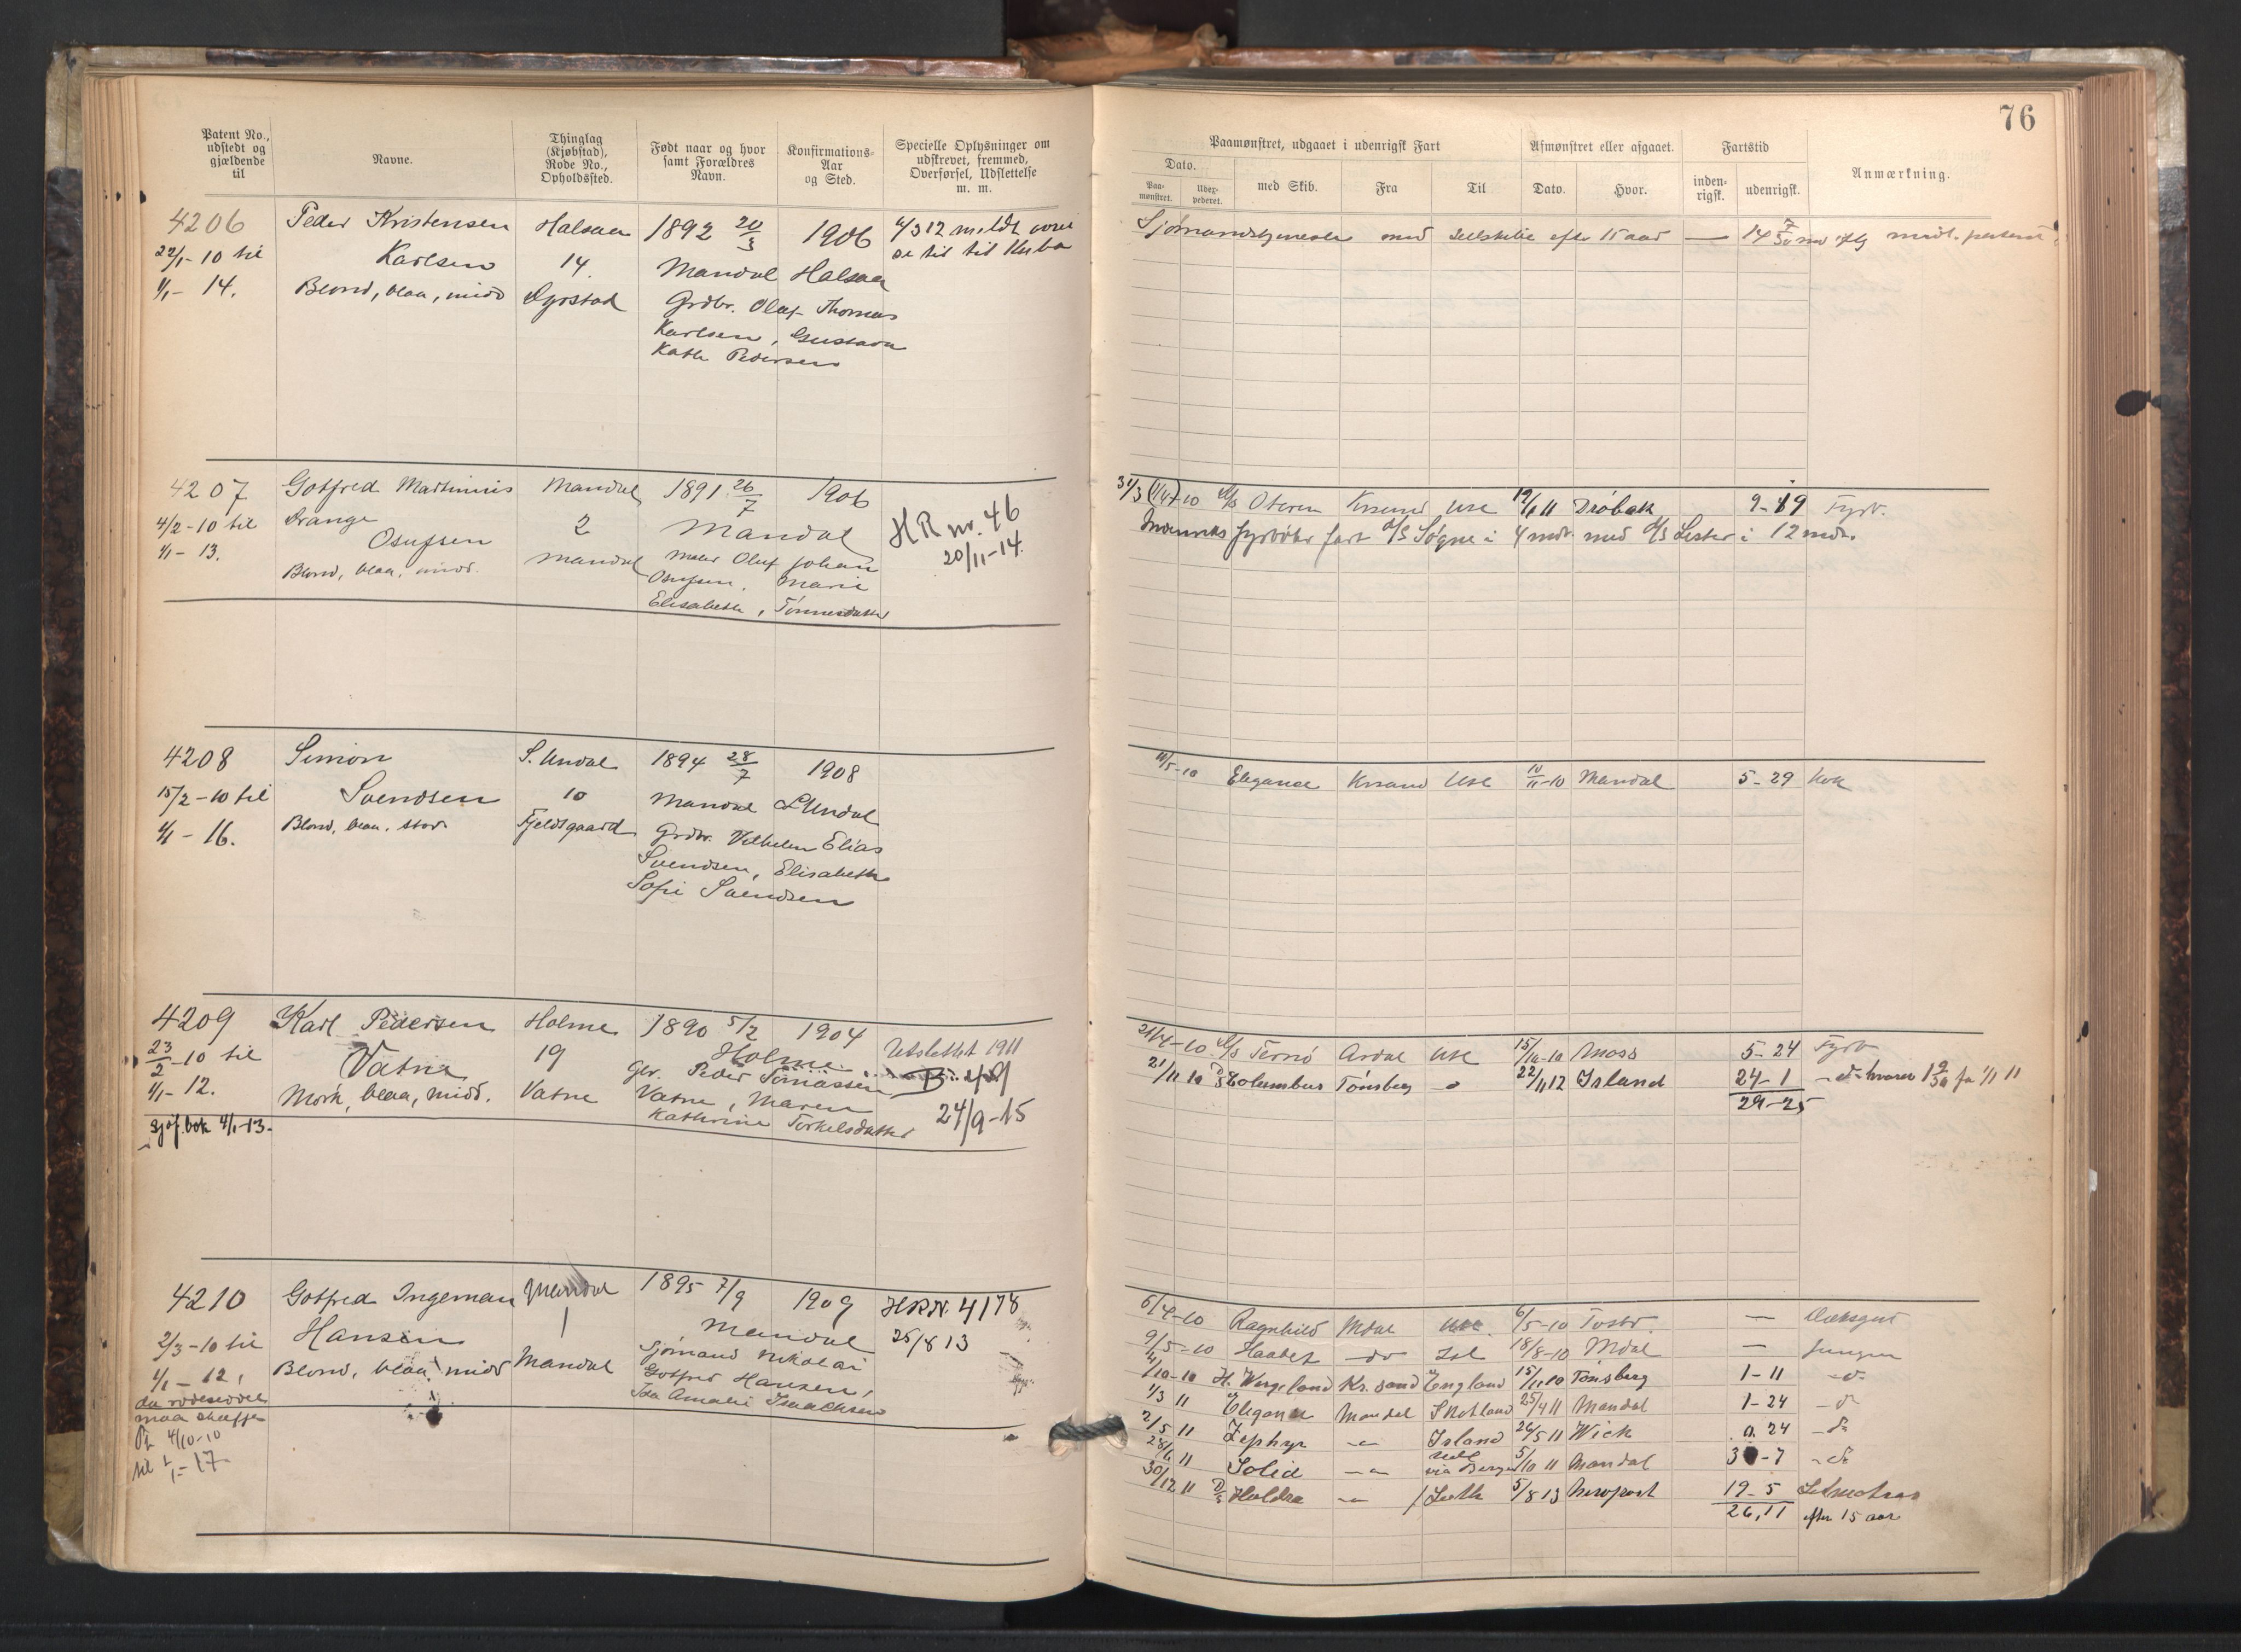 76
Patent No., udstedt og gjældende til
Navne.
Thinglag (Kjøbstad), Rode No., Opholdssted.
Født naar og hvor samt Forældres Navn.
Konfirmations-Aar og Sted.
Specielle Oplysninger om udskrevet, fremmed, Overførsel, Udslettelse m. m.
Paamønstret, udgaaet i udenrigsk Fart
Afmønstret eller afgaaet.
Fartstid
Anmærkning.
Dato.
Paa-mønstret.
Udex-pederet.
med Skib.
Fra
Til
Dato.
Hvor.
inden-rigsk.
udenrigsk.
4206 Peder Kristensen Halsaa 1892 20/3 1906 4/3 12 meldt
22/1-10 til Karlsen 14. Mandal Halsaa til Kuba
1/1-14. Blond, blaa, midd Grdbr. Olaf Thomas
Karlsen, Gustava
Kath Pedersen
Sjømandstjeneste med efter 15 aar — 14
4207 Gotfred Martinius Mandal 1891 26/7 1906
4/2-10 til Drange 2 Mandal HR nr. 46
1/1-13. Osufsen Mandal Oluf Johan 20/11-14.
Blond, blaa, midd. Osufsen, Marie
Elisabeth, Tønnesdatter
31/3 (1/4)-10 Oteren Krsand Use 12/1 11 Drøbak 9-19 Fyrb.
fyrbøter fart D/S Søgne i 4 mdr. med D/S Lister i 12 mdr.
4208 Simon S. Undal 1894 28/7 1908
15/2-10 til Svendsen 10 Mandal S Undal
1/1-16. Blond, blaa, stor Fjeldsgaard Grdbr. Vilhelm Elias
Svendsen, Elisabeth
Sofie Svendsen
10/5-10 Elegance Krsand Use 10/11-10 Mandal 5-29 Kok
4209 Karl Pedersen Holme 1890 5/2 1904 Utslettet 1911
23/2-10 til Vatne 19 Holme
1/1-12. Mørk, blaa, midd. Vatne Gbr. Peder Tomassen
Vatne, Maren 24/9-15
Sjøf.bok 4/1-13. Kathrine Torkelsdatter
21/4-10 D/S Ternø Ardal Use 15/10-10 Moss 5-24 Fyrb
21/11 10 D/S Kolumbus Tønsberg 22/11 12 Island 24-1
29-25
4210 Gotfred Ingeman Mandal 1895 7/9 1909 HR N. 4178
2/3-10 til Hansen 1 Mandal 25/8 13
1/1-12, Blond, blaa, midd Mandal Sjømand Nikolai
Gotfred Hansen,
Ida Amalie Isaachsen
maa skaffe
4/10-10
til 1/1-17
6/4-10 Ragnhild Mdal Use. 6/5-10 — Dæksgut
9/5-10 Haabet do Isl 18/8-10 Mdal — Jungm
4/10-10 H. Wergeland Kr.sand England 15/11 10 Tønsberg 1-11 do
1/3 11 Elegance Mandal Skotland 25/4 11 Mandal 1-24
2/5 11 Zephyr Island 26/5 11 Wick 0.24
28/6 11 Solid via Bergen 5/10 11 Mandal 3-7
30/12 11 D/S Huldra Leith 5/8 13 Newport 19-5 Letmatros
26,11 efter 15 aar